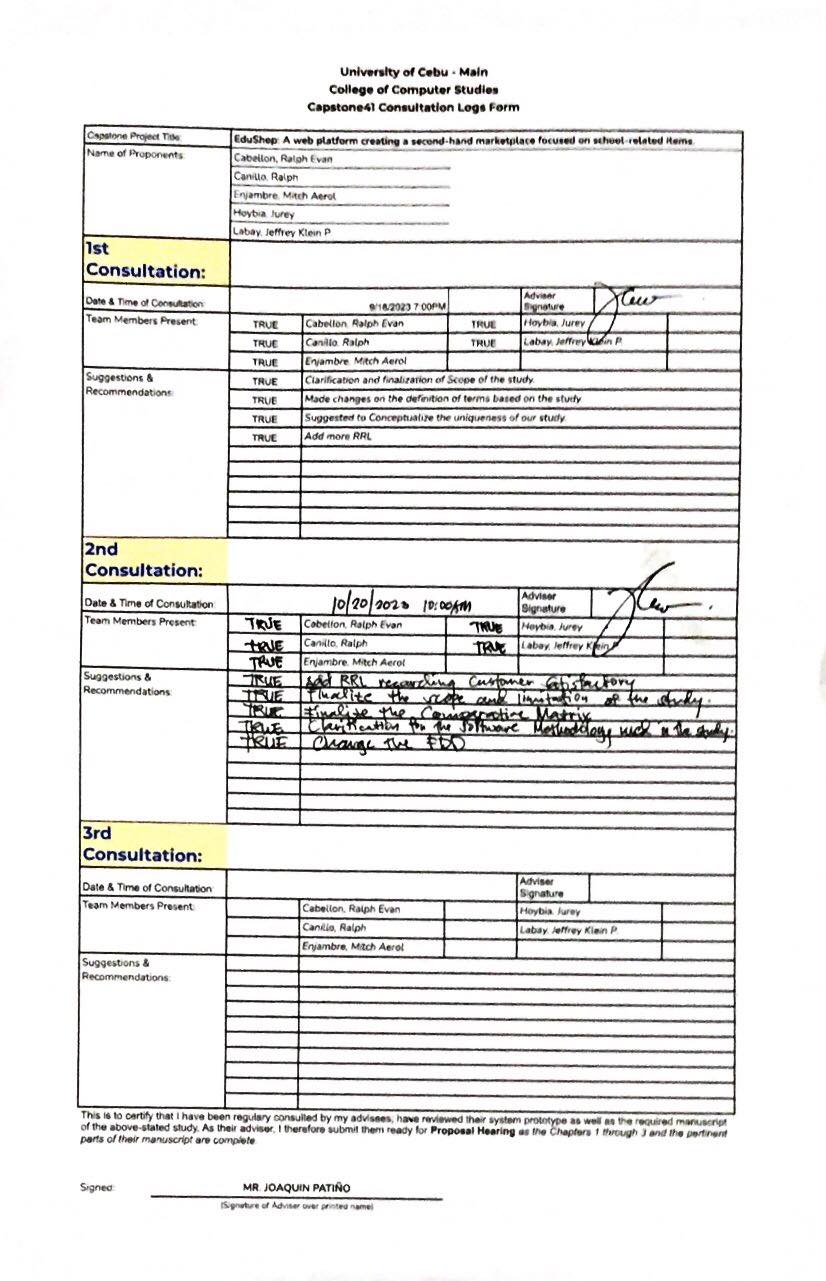 University of Cebu - Main
College of Computer Studies
Capstone41 Consultation Logs Form
Capstone Project Title: EduShop: A web platform creating a second-hand marketplace focused on school-related items.
Name of Proponents: Cabellon, Ralph Evan
Canillo, Ralph
Enjambre, Mitch Aerol
Hoybia, Jurey
Labay, Jeffrey Klein P.
1st
Consultation:
Date & Time of Consultation: 9/18/2023 7:00PM Adviser
Signature
Team Members Present: TRUE Cabellon, Ralph Evan TRUE Hoybia, Jurey
TRUE Canillo, Ralph TRUE Labay, Jeffrey Klein P.
TRUE Enjambre, Mitch Aerol
Suggestions & TRUE Clarification and finalization of Scope of the study.
Recommendations: TRUE Made changes on the definition of terms based on the study.
TRUE Suggested to Conceptualize the uniqueness of our study.
TRUE Add more RRL
2nd
Consultation:
Date & Time of Consultation: 10/20/2023 10:00AM Adviser
Signature
Team Members Present: TRUE Cabellon, Ralph Evan TRUE Hoybia, Jurey
TRUE Canillo, Ralph TRUE Labay, Jeffrey Klein P.
TRUE Enjambre, Mitch Aerol
Suggestions & TRUE Add RRL regarding Customer Satisfactory
Recommendations: TRUE Finalize the scope and limitation of the study.
TRUE Finalize the Comparative Matrix
TRUE Clarification for the Software Methodology used in the study.
TRUE Change the
3rd
Consultation:
Date & Time of Consultation: Adviser
Signature
Team Members Present: Cabellon, Ralph Evan Hoybia, Jurey
Canillo, Ralph Labay, Jeffrey Klein P.
Enjambre, Mitch Aerol
Suggestions &
Recommendations:
This is to certify that I have been regulary consulted by my advisees, have reviewed their system prototype as well as the required manuscript
of the above-stated study. As their adviser, I therefore submit them ready for Proposal Hearing as the Chapters 1 through 3 and the pertinent
parts of their manuscript are complete.
Signed: MR. JOAQUIN PATIÑO
(Signature of Adviser over printed name)